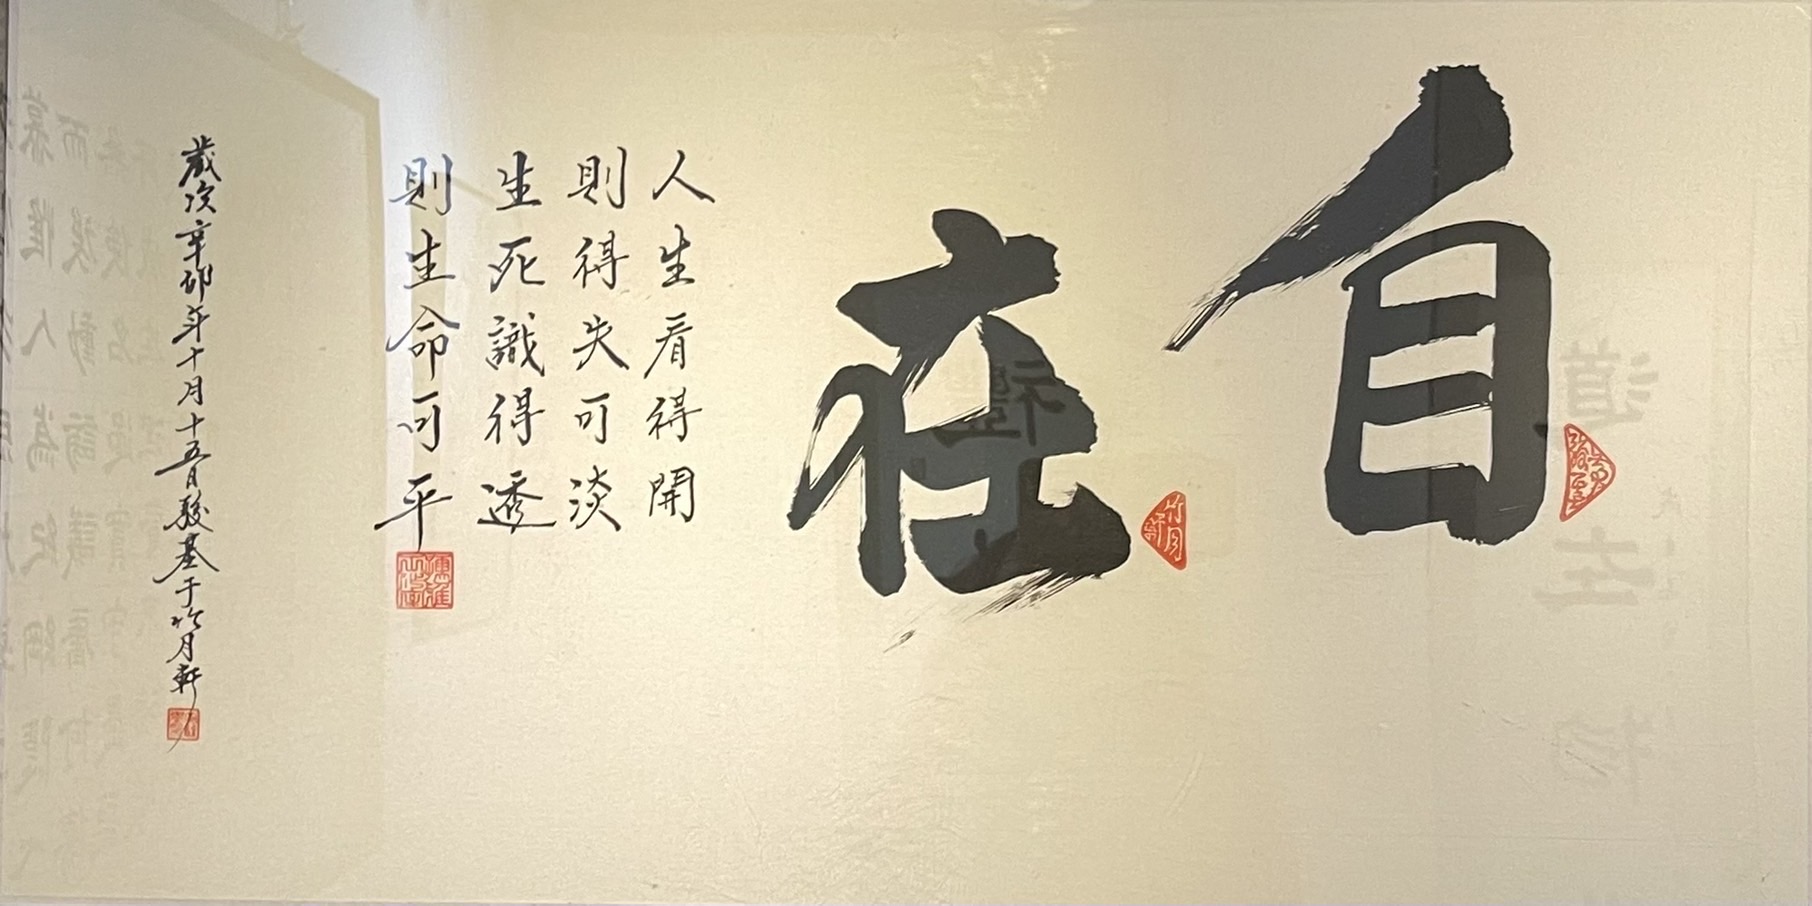 自在
人生看得開
則得失可淡
生死識得透
則生命可平
歲次辛卯年十月十五日駿基于竹月軒
竹月軒